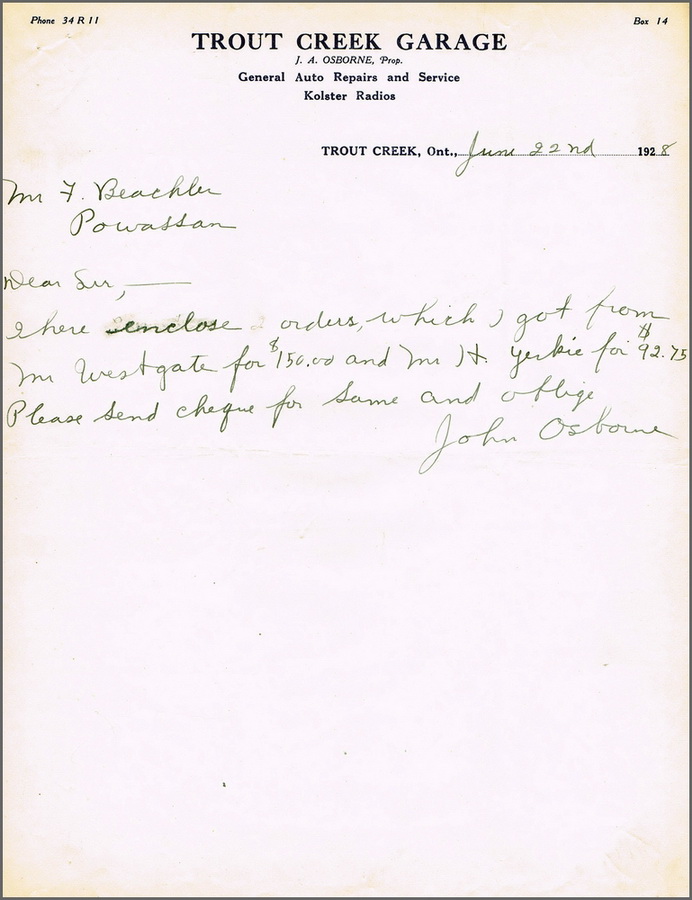 Phone 34 R 11
Box 14
TROUT CREEK GARAGE
J. A. OSBORNE, Prop.
General Auto Repairs and Service
Kolster Radios
TROUT CREEK, Ont., June 22nd 1928
Mr F. Beachler
Powassan
Dear Sir,—
I here enclose 2 orders, which I got from
Mr Westgate for $150.00 and Mr H. Yerkie for $92.75
Please send cheque for same and oblige
John Osborne